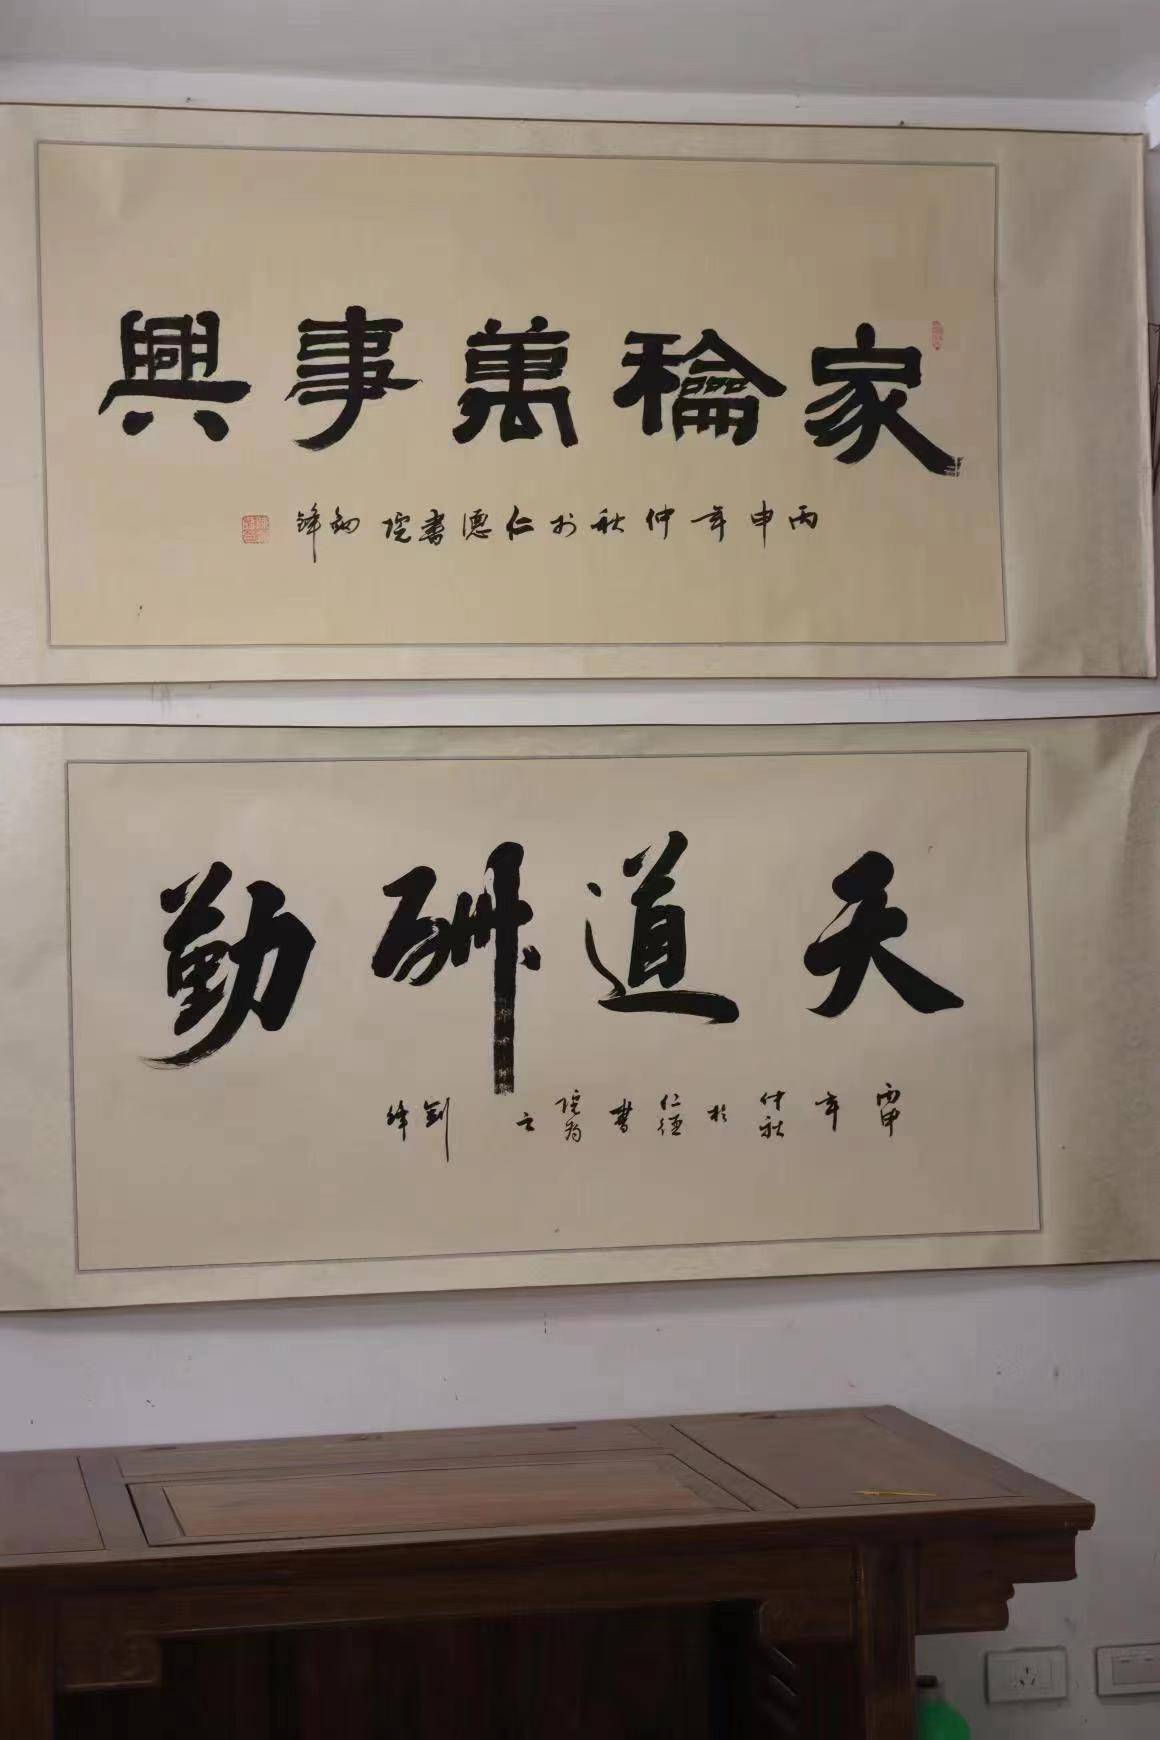 家龢萬事興
丙申年仲秋於仁德書院劍鋒
天道酬勤
丙申年仲秋於仁德書院為之劍鋒